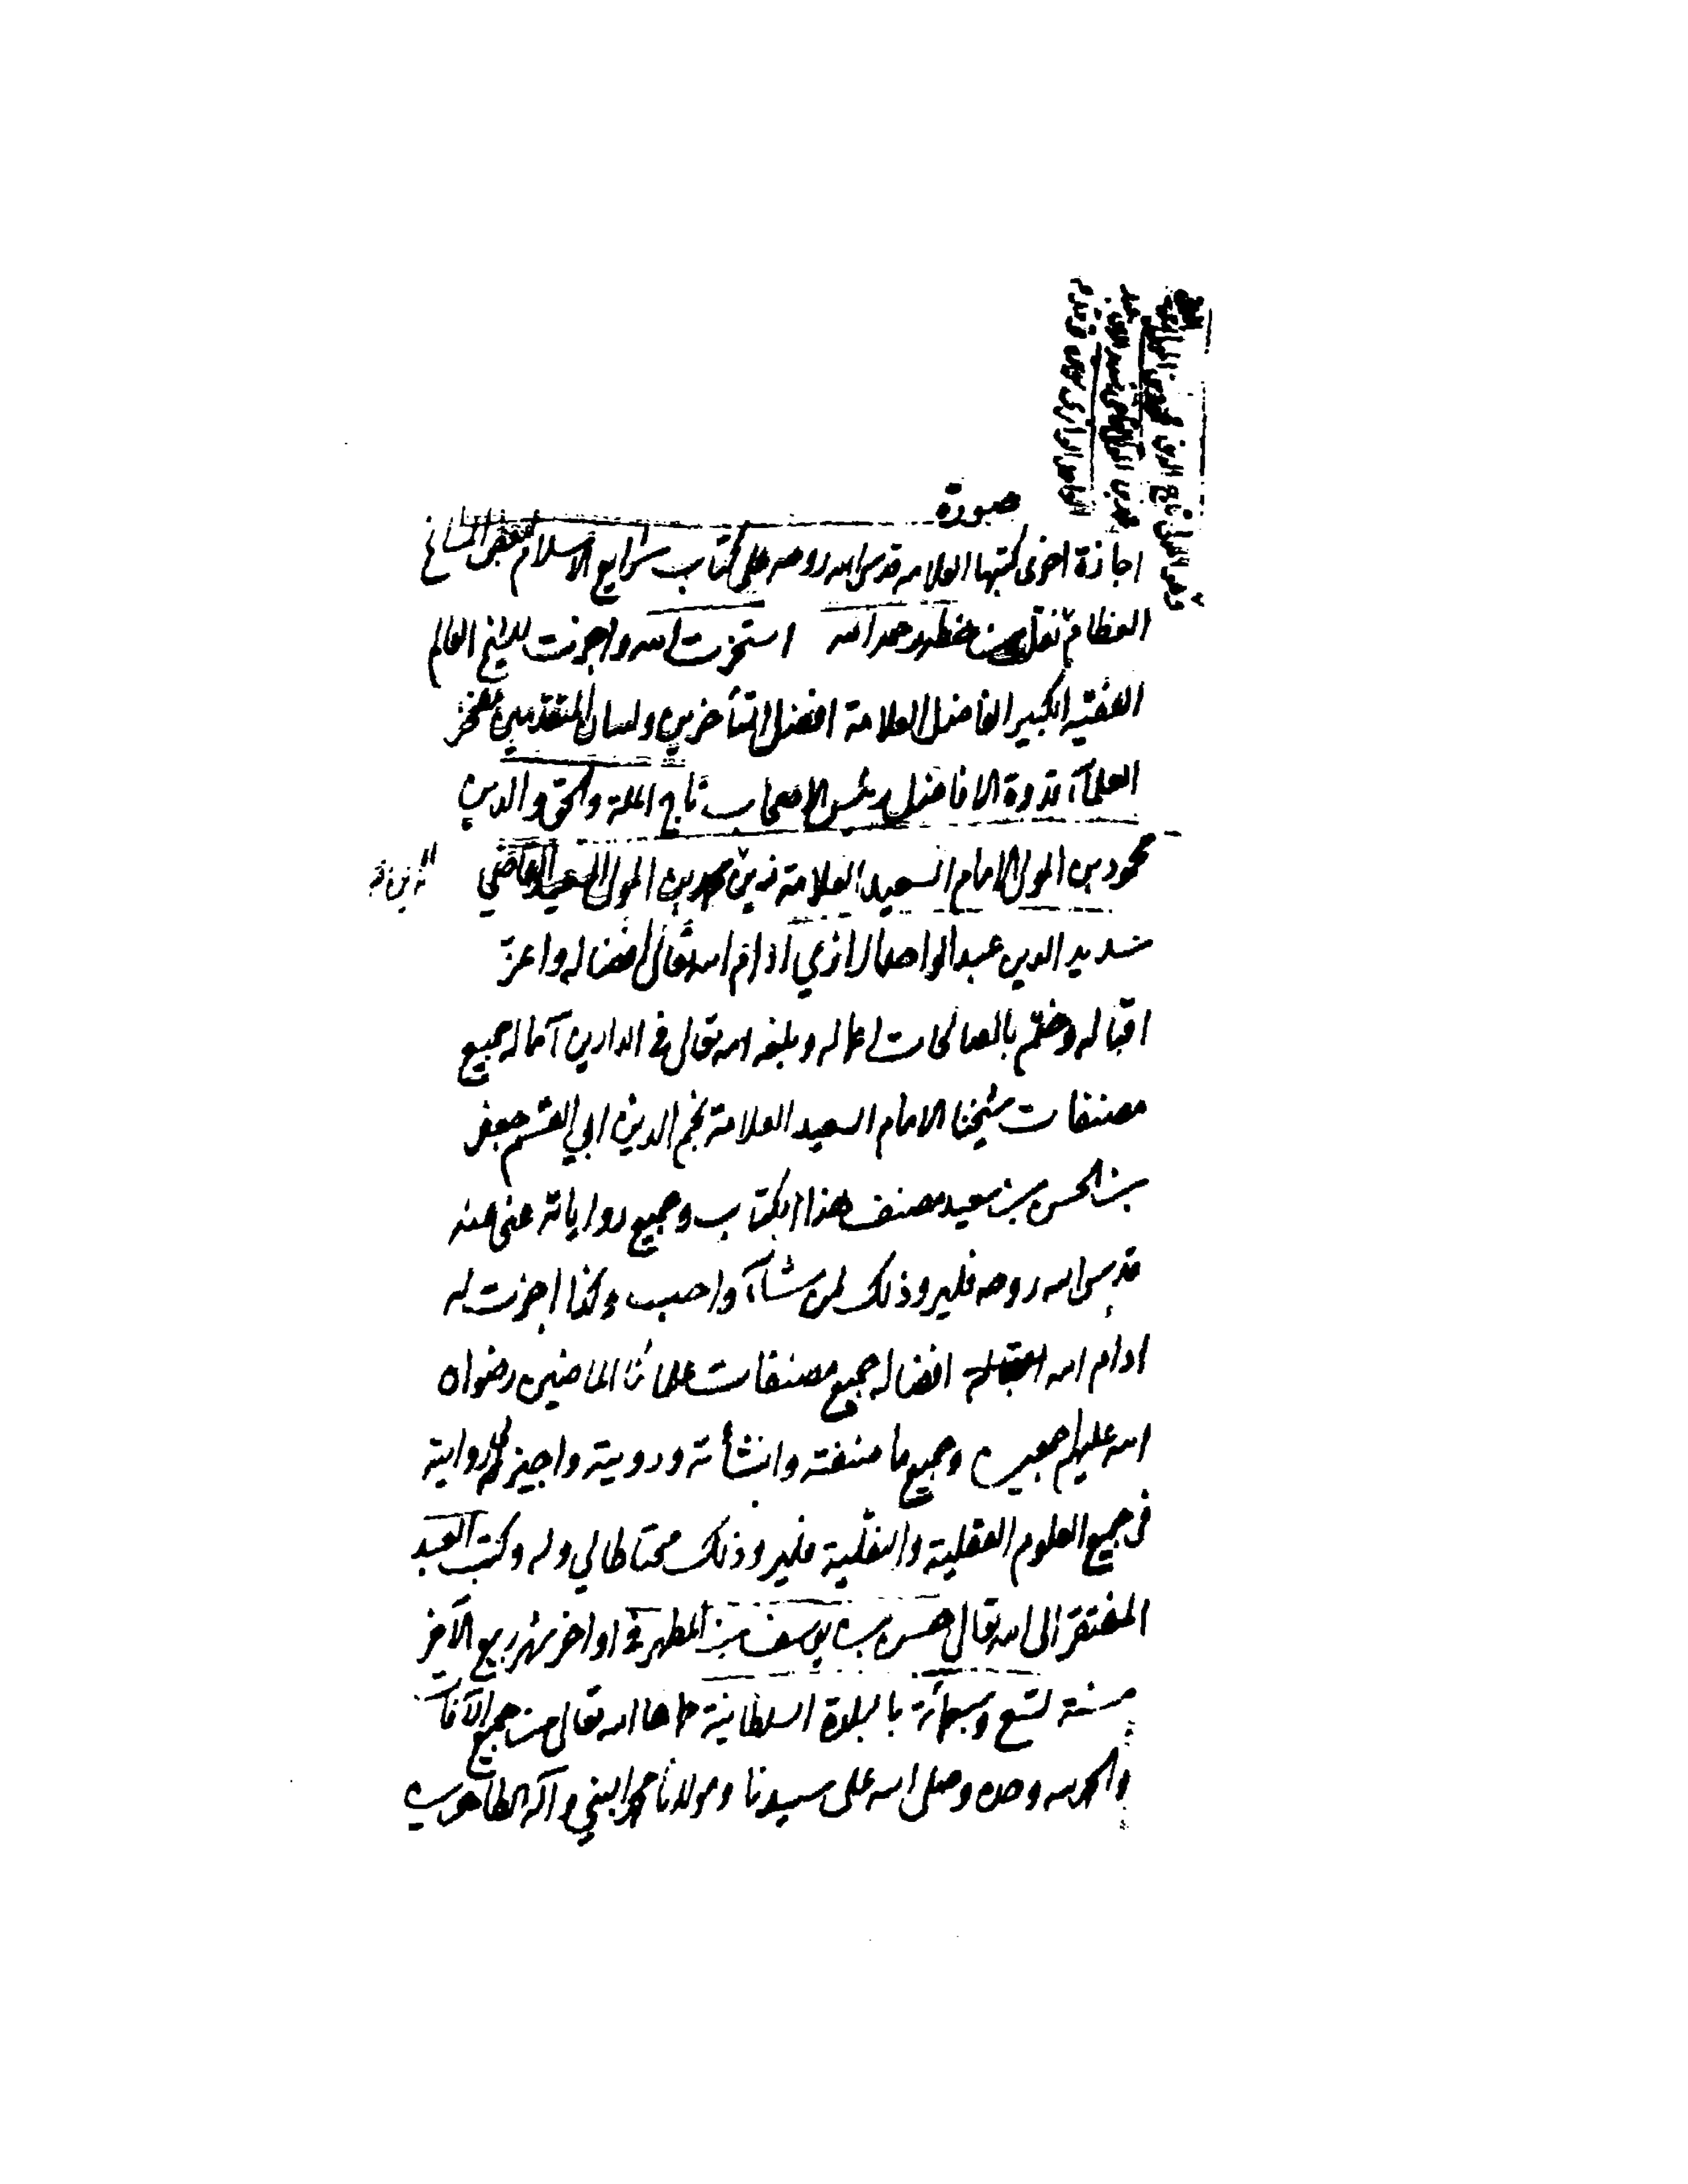 صورة
اجازة اخرى كتبها العلامه قدس الله روحه على كتاب شرايع الاسلام لبعض المشايخ
العظام نقلت من خطه وحمد الله استخرت الله واجزت للشيخ العالم
الفقيه الكبير الفاضل العلامة افضل المتأخرين ولسان المتقدمين مفخر
العلمآء قدوة الافاضل رئيس الاصحاب تاج الملة والحق والدين
محمود بن المولى الامام السعيد العلامة زين محمد بن المولى السعيد القاضي
سديد الدين عبد الواحد الرازي ادام الله تعالى افضاله واعز
اقباله وختم بالصالحات اعماله وبلغه الله تعالى في الدارين آماله جميع
مصنفات شيخنا الامام السعيد العلامة نجم الدين ابي القسم جعفر
بن الحسن بن سعيد مصنف هذا الكتاب وجميع رواياته عني عنه
قدس الله روحه فليرو ذلك لمن شآء واحب وكذا اجزت له
ادام الله افضاله جميع مصنفات علمائنا الماضين رضوان
الله عليهم اجمعين وجميع ما صنفته وانشأته ورويته واجيز لي روايته
في جميع العلوم العقلية والنقلية فليرو ذلك محتاطا لي وله وكتب العبد
المفتقر الى الله تعالى حسن بن يوسف بن المطهر في اواخر شهر ربيع الآخر
سنة تسع وسبعمائة بالبلدة السلطانية حماها الله تعالى من جميع الآفات
والحمد لله وحده وصلى الله على سيدنا ومولانا محمد النبي وآله الطاهرين